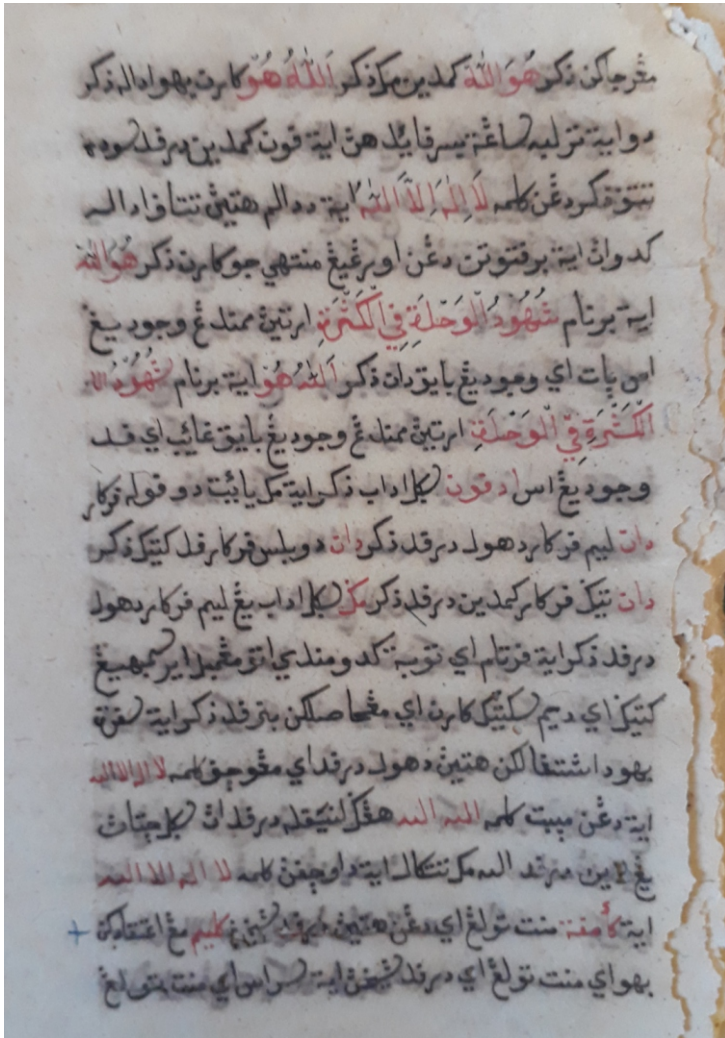 مڠرجاكن ذكر هُوَ اللّٰهْ كمدين مك ذكر اَللّٰهُ هُوْ كارن بهوا اد اله ذكر
دو ايت ترلبه ساڠة بسر فايده ڽ ايت ڤون كمدين درڤد سوده
تنتو ذكر دڠن كلمه لَا اِلٰهَ اِلَّا اللّٰه ايت ددالم هتيڽ تتاڤ اد اله
كدوا٢ ايت برڤتوتن دڠن اورڠ يڠ منتهي جو كارن ذكر هُوَ اللّٰه
ايت برنام شُهُوْدُ الْوَحْدَةِ فِي الْكَثْرَةِ ارتيڽ ممندڠ وجود يڠ
اس بات اي وجود يڠ بايق دان ذكر اَللّٰهُ هُوْ ايت برنام شُهُوْدُ ال
الْكَثْرَةِ فِي الْوَحْدَةِ ارتيڽ ممندڠ وجود يڠ بايق غائب اي ڤد
وجود يڠ اس ادڤون سكل اداب ذكر ايت مك يائيت دو ڤوله ڤركار
دان ليم ڤركار دهولو درڤد ذكر دان دوبلس ڤركار ڤد كتيك ذكر
دان تيڬ ڤركار كمدين درڤد ذكر مك سكل اداب يڠ ليم ڤركار دهولو
درڤد ذكر ايت ڤرتام اي توبة كدو مندي اتو مڠمبل اير سمبهيڠ
كتيك اي ديم سكتيك كارن اي مڠحاصلكن بنر ڤد ذكر ايت سڤرة
بهوا دشتغاكن هتيڽ دهولو درڤد اي مڠوچڤ كلمه لا اله الا الله
ايت دڠن مڽبت كلمه الله الله هڠڬ لنيڤله درڤداڽ سكل چتا٢
يڠ لاين درڤد الله مك تتكال ايت داوچڤن كلمه لا اله الا الله
ايت كأمڤت منت تولڠ اي دڠن هتيڽ درڤد شيخڽ كليم مڠاعتقادكن
بهوا اي منت تولڠ اي درڤد شيخڽ ايت سراس اي منت تولڠ